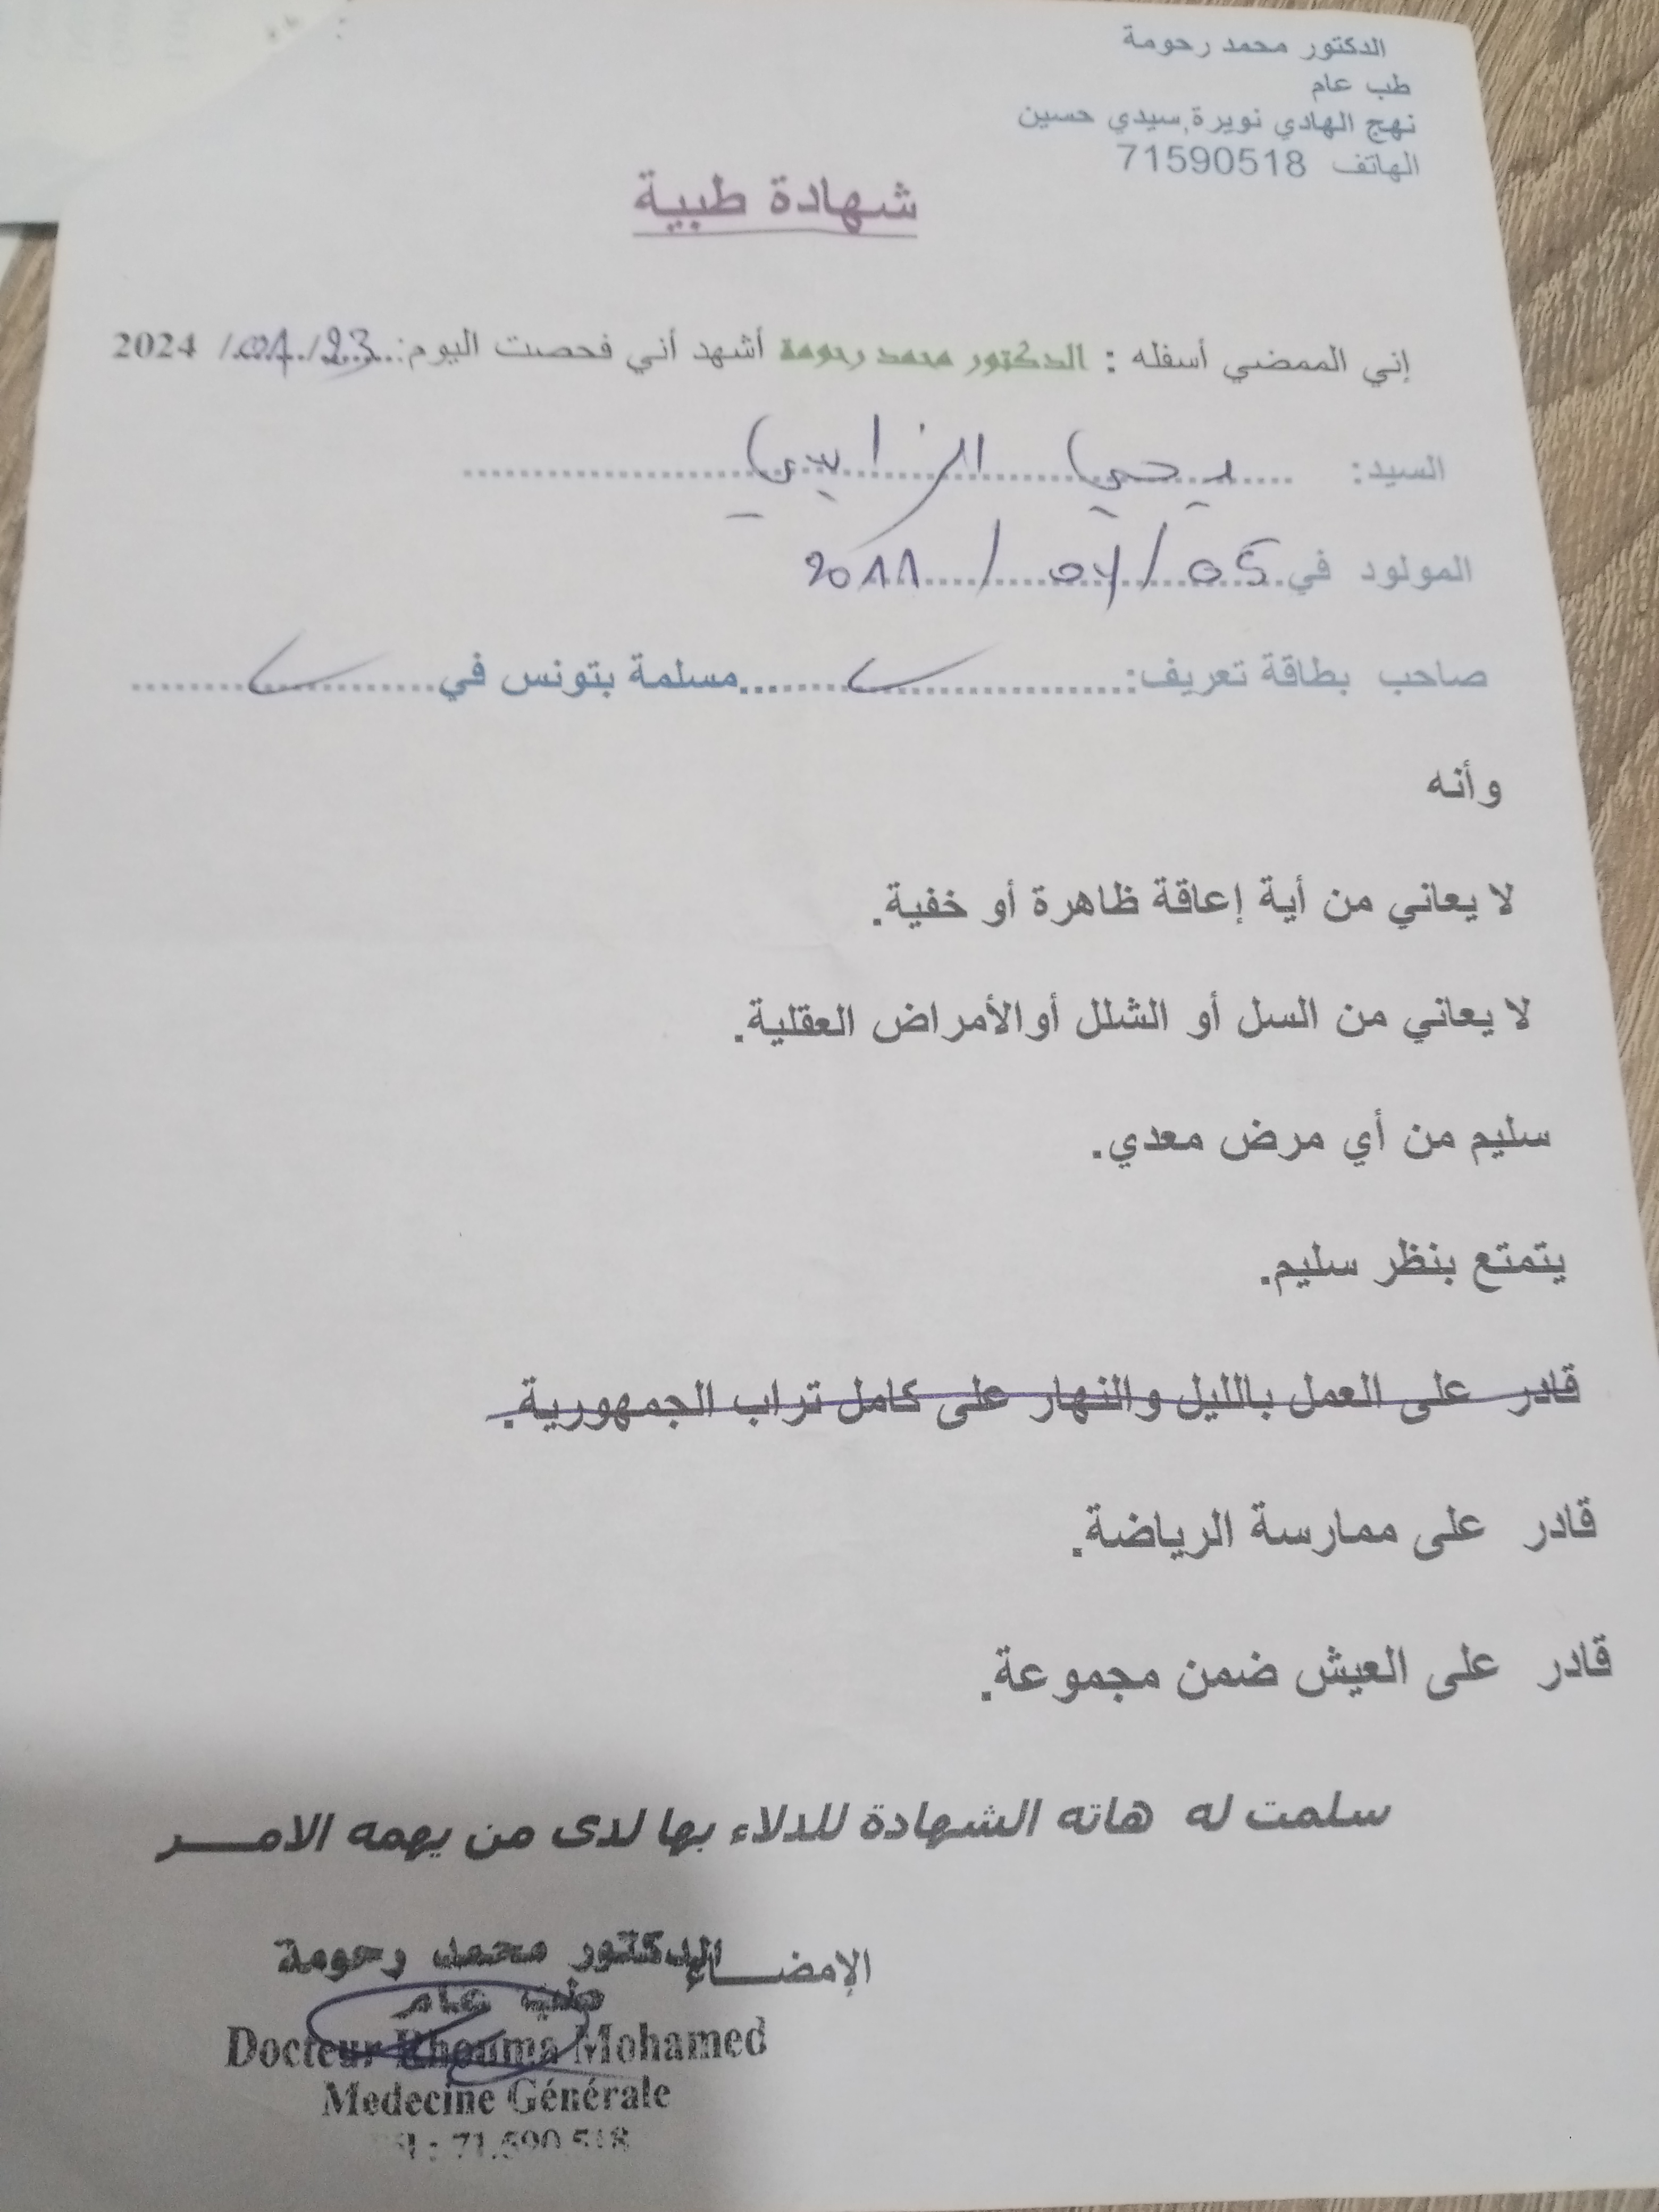 الدكتور محمد رحومة
طب عام
نهج الهادي نويرة,سيدي حسين
الهاتف 71590518
شهادة طبية
إني الممضي أسفله : الدكتور محمد رحومة أشهد أني فحصت اليوم:..23../.01./ 2024
السيد: .....يحي الزايبي.....
المولود في 05 / 04 / 2011
صاحب بطاقة تعريف:..........مسلمة بتونس في..........
وأنه
لا يعاني من أية إعاقة ظاهرة أو خفية.
لا يعاني من السل أو الشلل أوالأمراض العقلية.
سليم من أي مرض معدي.
يتمتع بنظر سليم.
قادر على العمل بالليل والنهار على كامل تراب الجمهورية.
قادر على ممارسة الرياضة.
قادر على العيش ضمن مجموعة.
سلمت له هاته الشهادة للدلاء بها لدى من يهمه الامـــــر
الإمضـــــاء
الدكتور محمد رحومة
طب عام
Docteur Rhouma Mohamed
Medecine Générale
Tél : 71.590.518